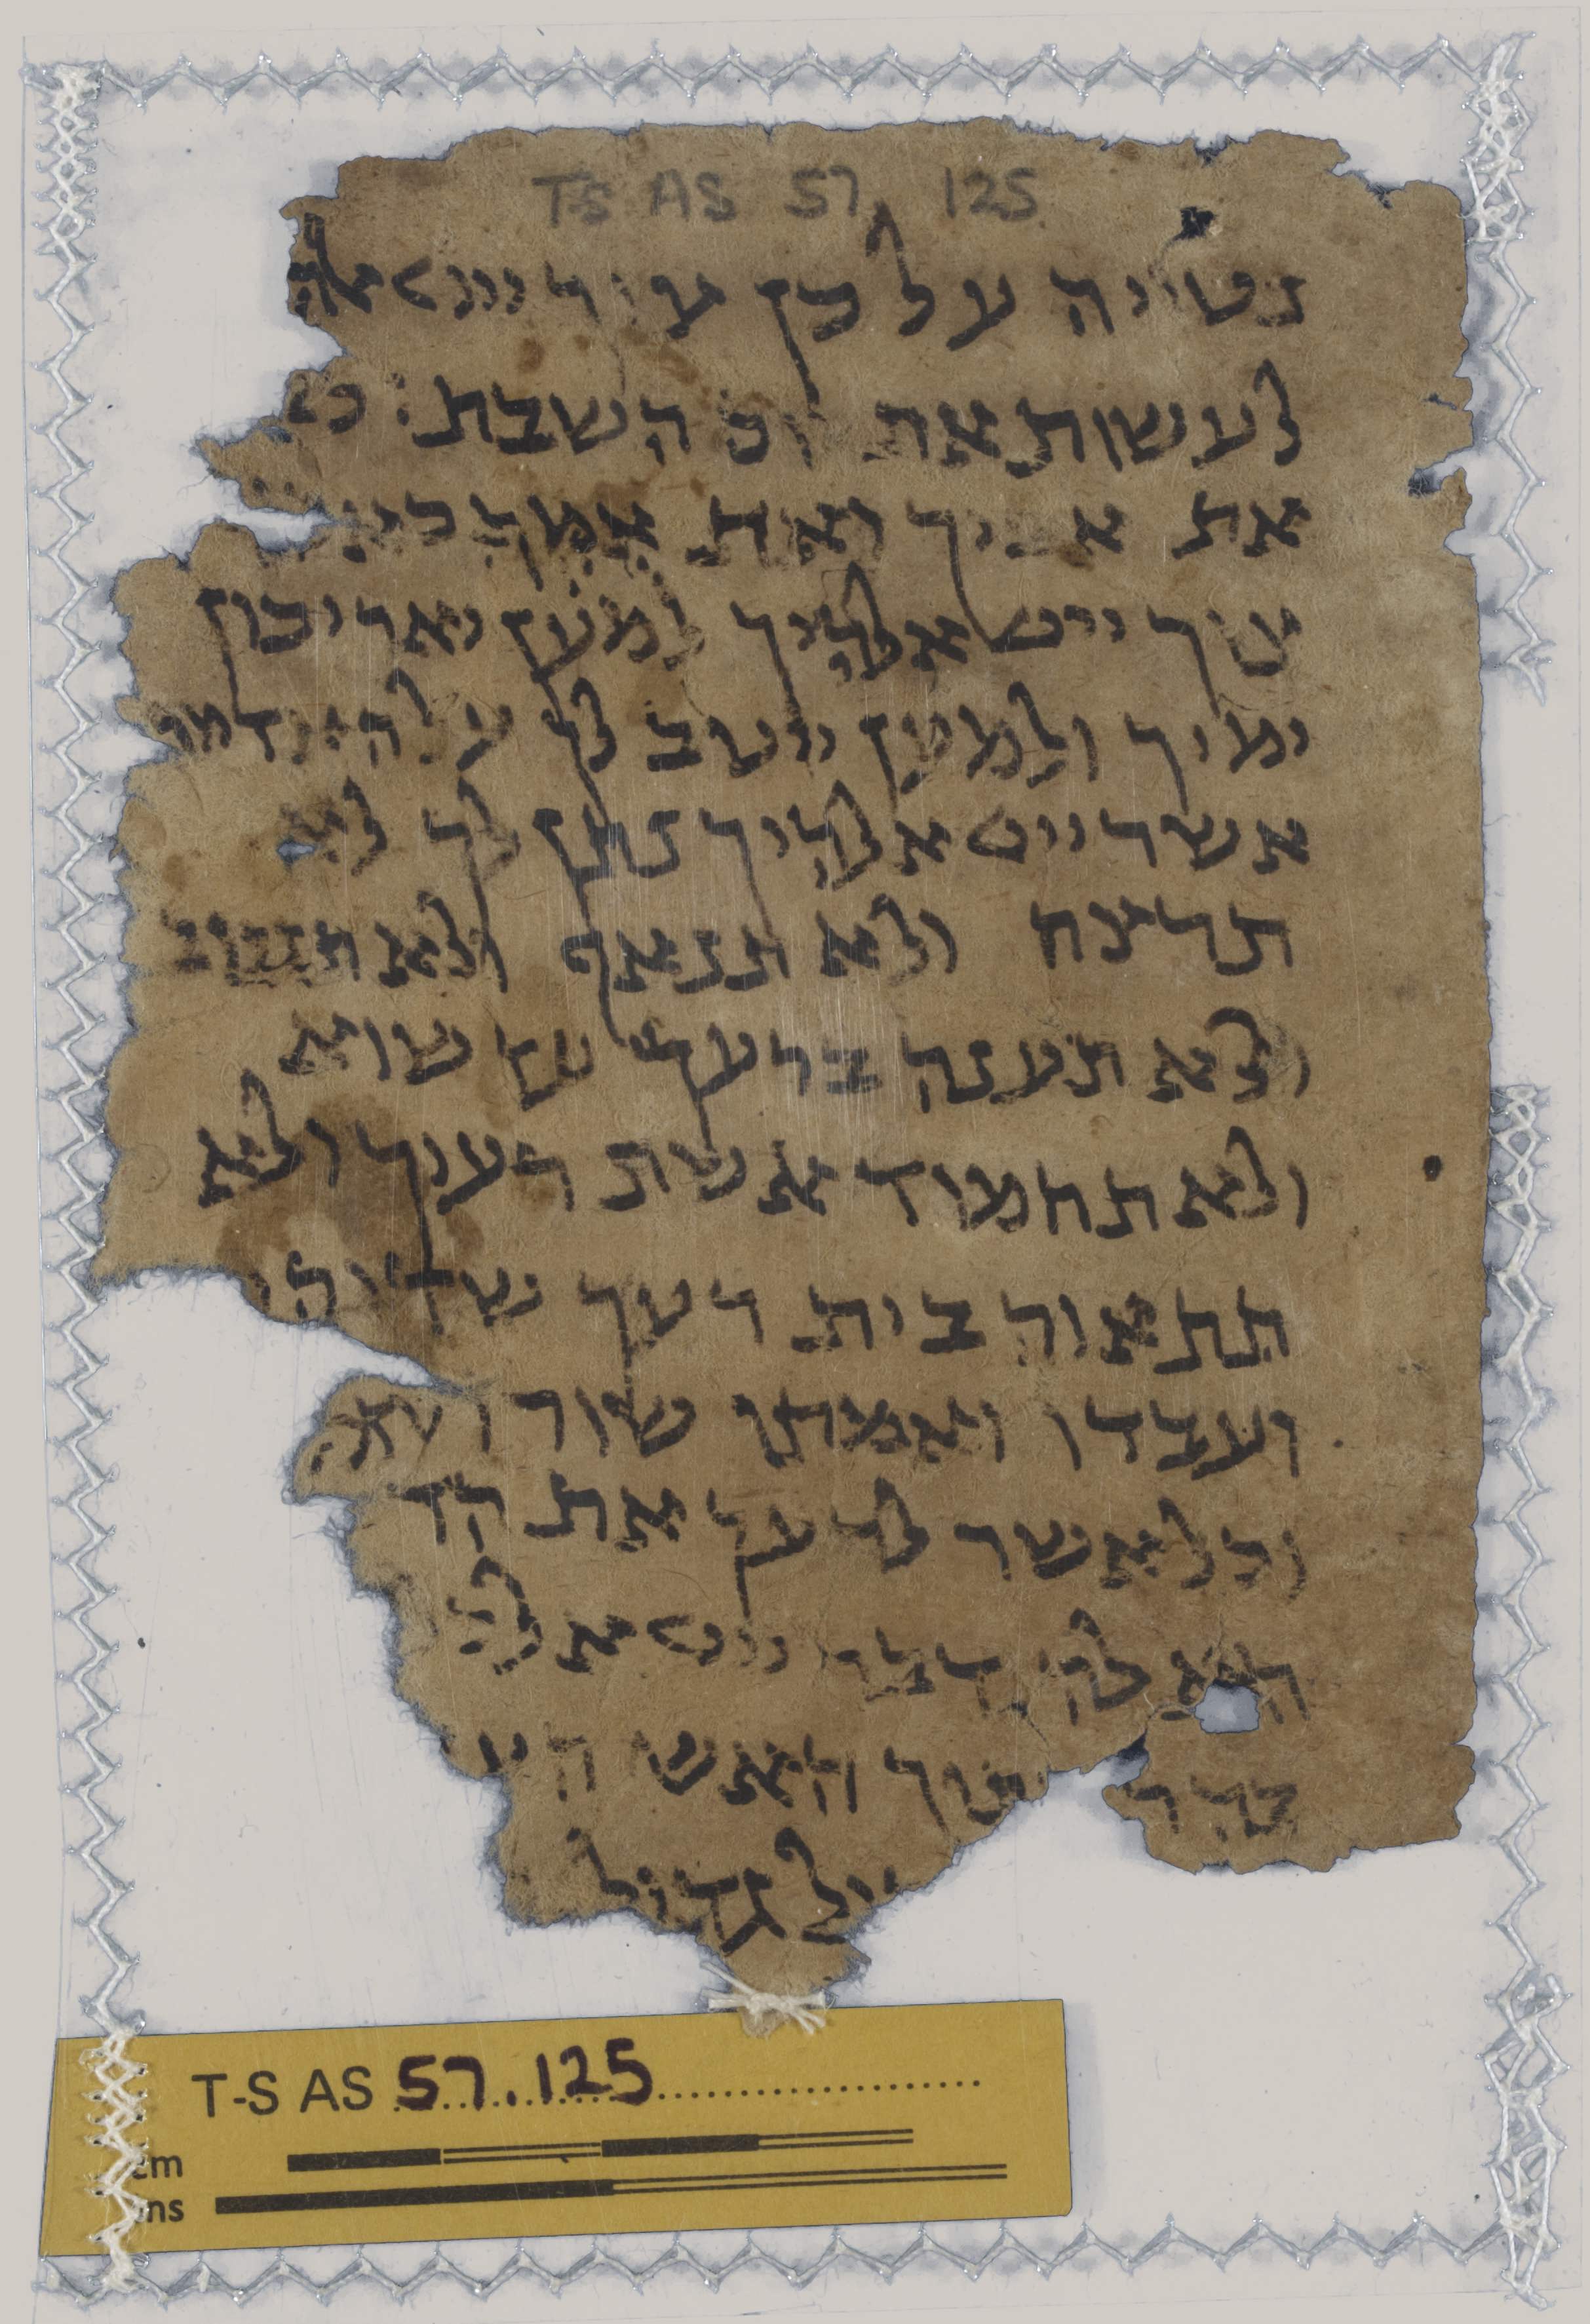 T-S AS 57. 125
נטוייה על כן ציוך ייי אלה
לעשות את יום השבת: כב
את אביך ואת אמך כא
צוך ייי אלהיך למען יאריכון
ימיך ולמען ייטב לך על האדמה
אשר ייי אלהיך נתן לך לא
תרצח ולא תנאף ולא תגנוב
ולא תענה ברעך עד שוא
ולא תחמוד אשת רעיך ולא
תתאוה בית רעך שדיהו
ועבדו ואמתו שור
וכל אשר לרעך את הד
האלה דבר ייי אל
בהר תוך האש הע
גדול
T-S AS 57.125
cm
ins